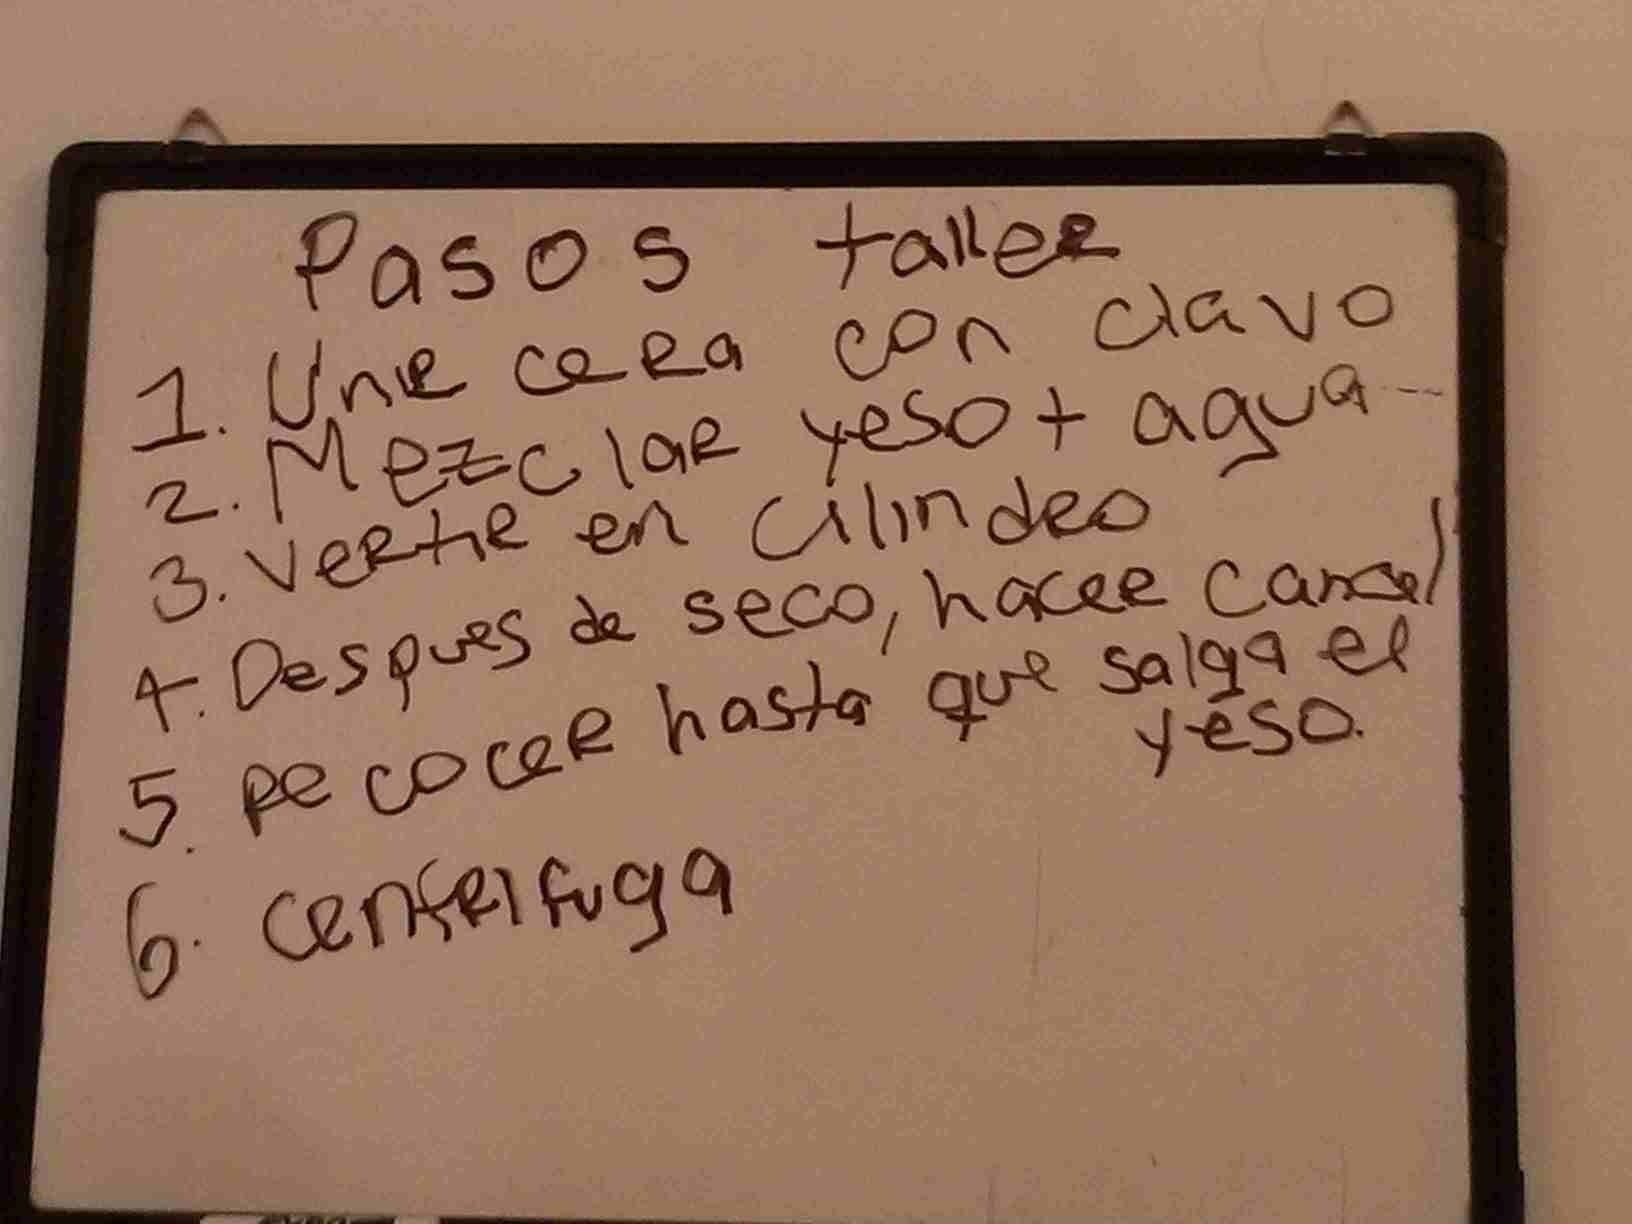 Pasos taller
1. Unir cera con clavo
2. Mezclar yeso + agua
3. Vertir en cilindro
4. Despues de seco, hacer canal
5. Recocer hasta que salga el
yeso.
6. Centrifuga